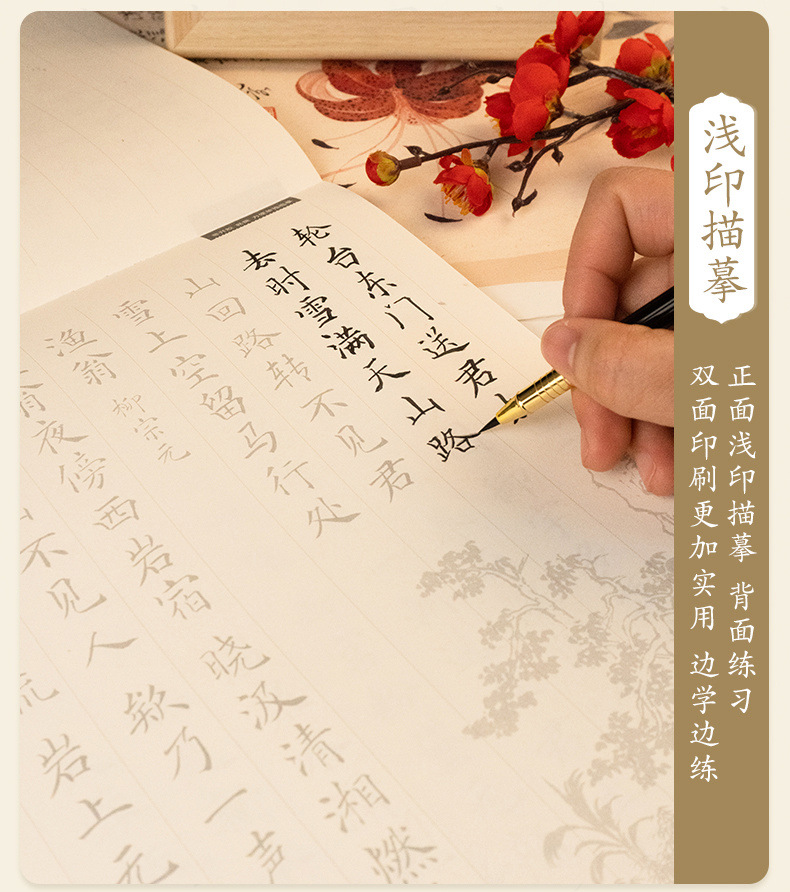 浅印描摹
正面浅印描摹 背面练习
双面印刷更加实用 边学边练
轮台东门送君
去时雪满天山路
山回路转不见君
雪上空留马行处
渔翁 柳宗元
翁夜傍西岩宿 晓汲清湘燃
不见人 欸乃一声
流 岩上无